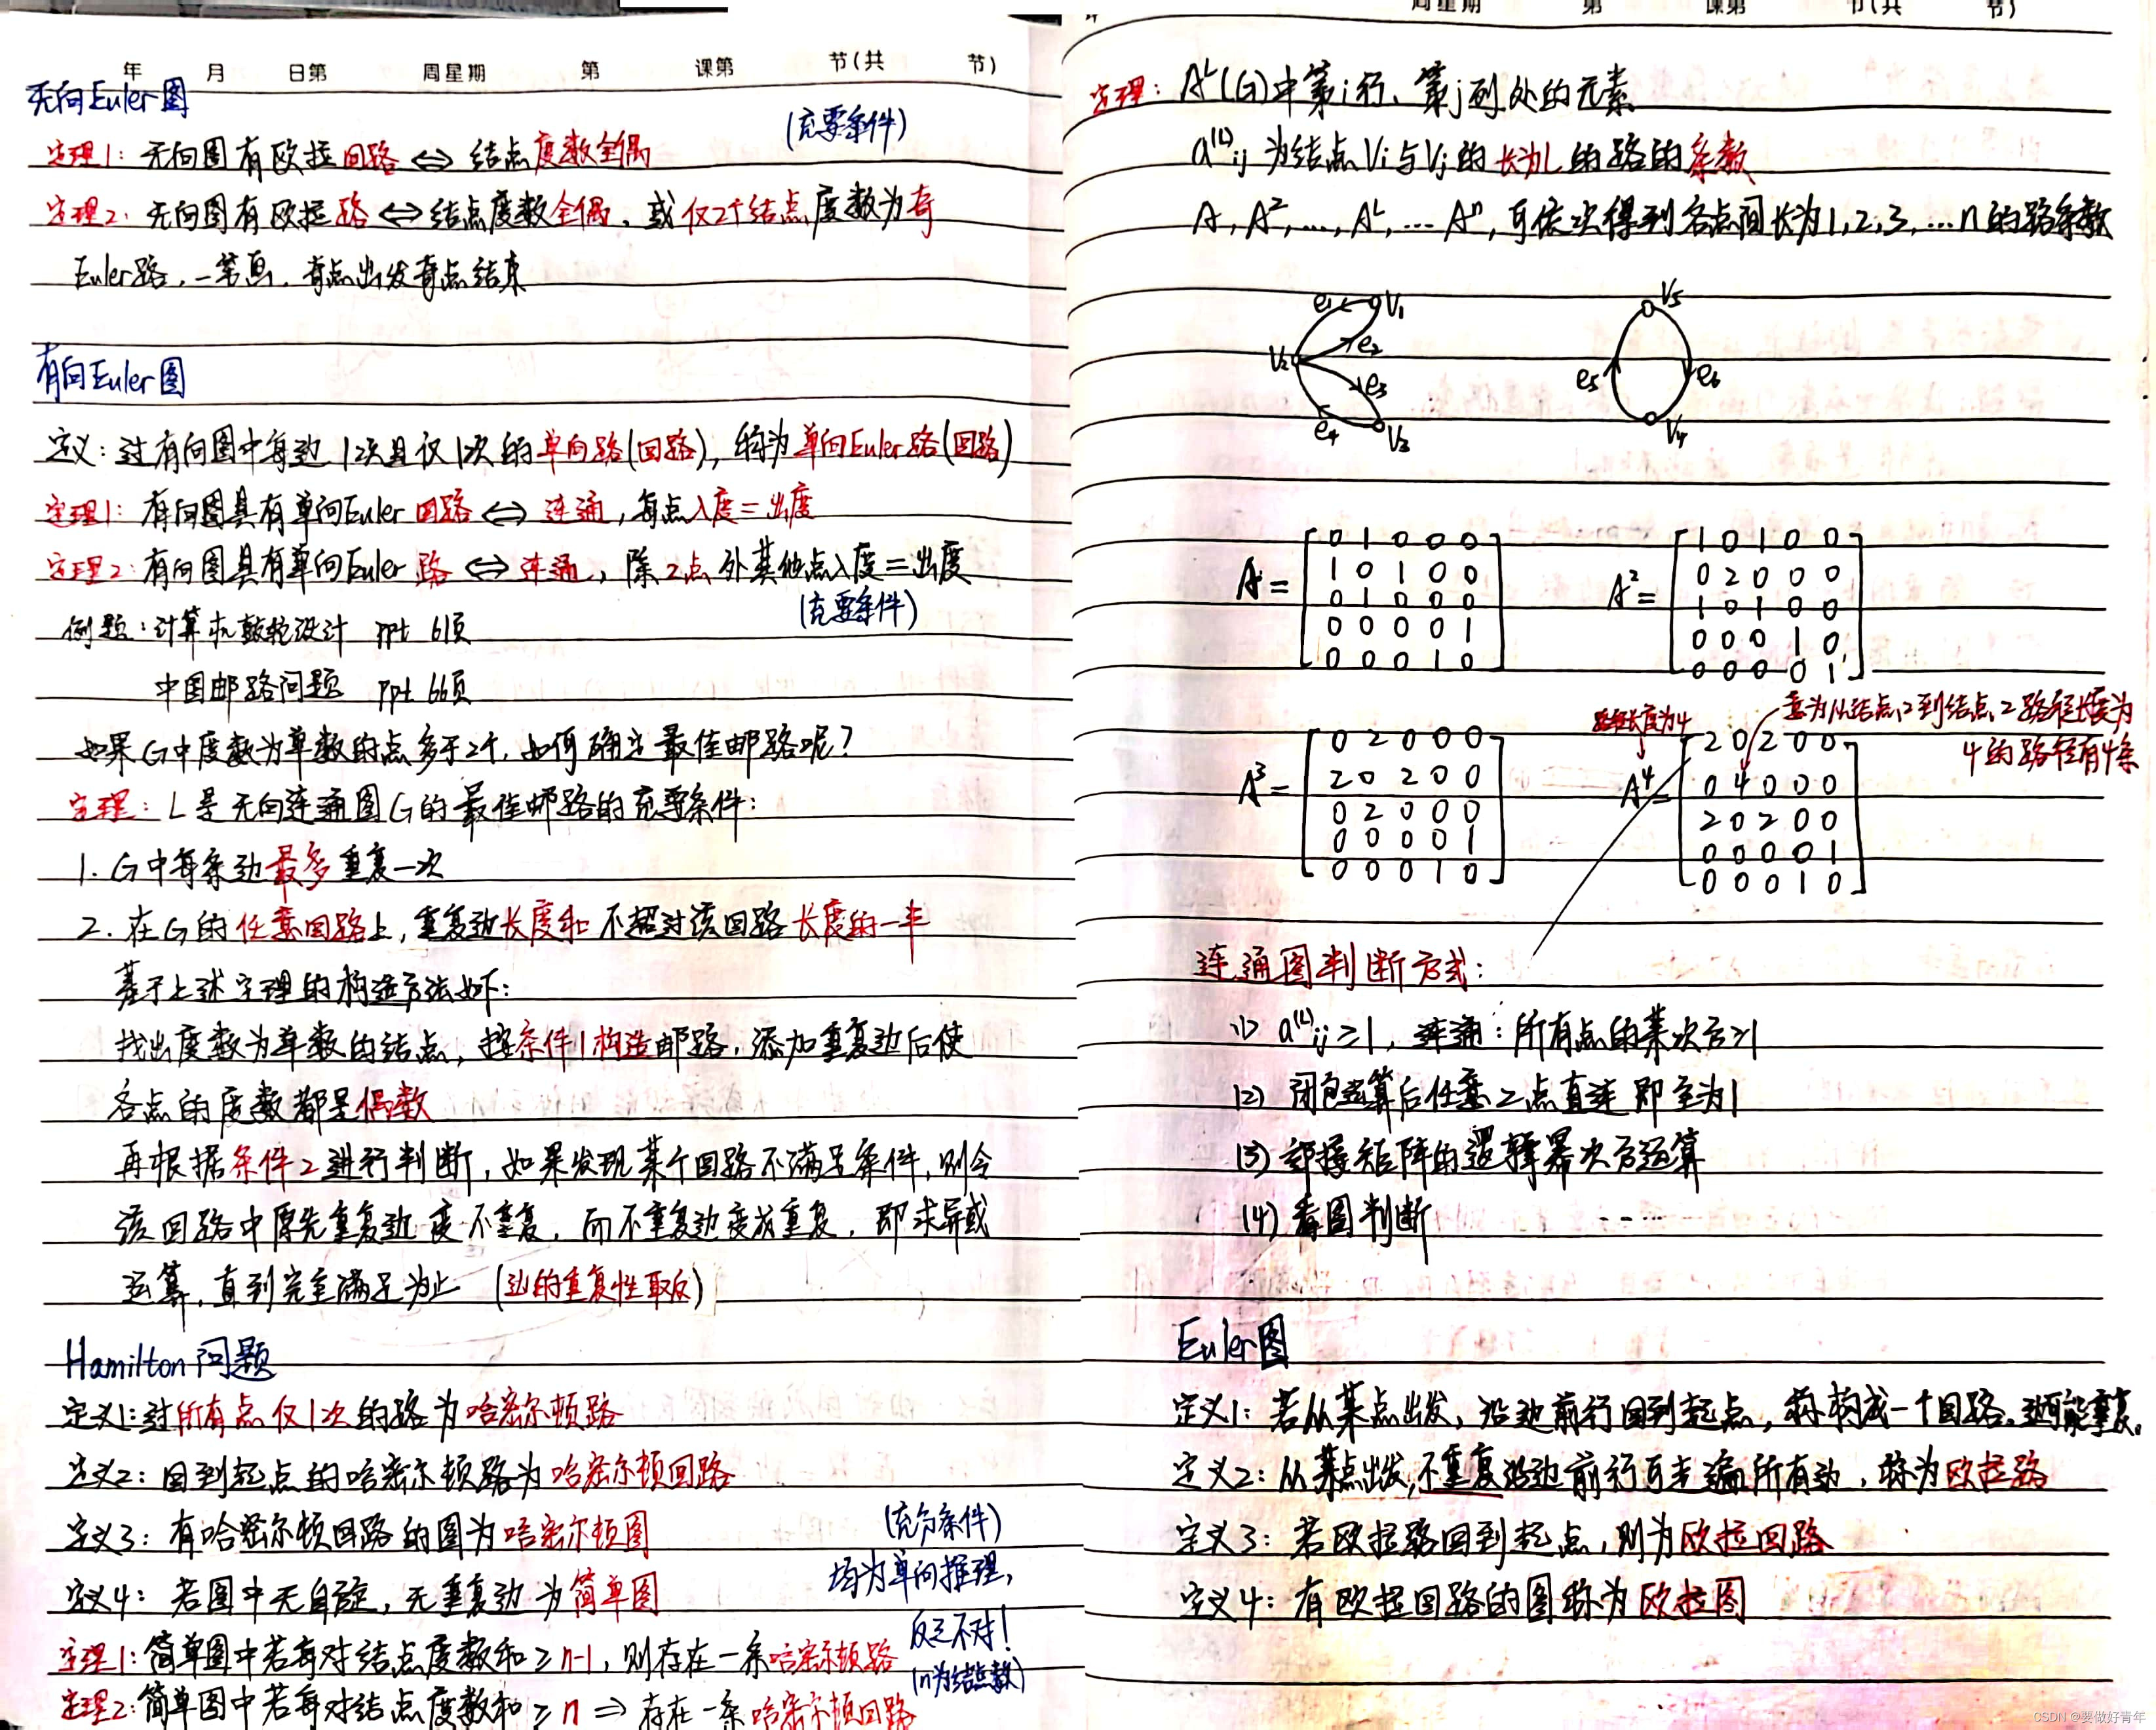 年 月 日第 周星期 第 课第 节(共 节)
无向Euler图
(充要条件)
定理1: 无向图有欧拉回路 ⇔ 结点度数全偶
定理2: 无向图有欧拉路 ⇔ 结点度数全偶, 或仅2个结点度数为奇
Euler路, 一笔画, 奇点出发奇点结束
有向Euler图
定义: 过有向图中每边1次且仅1次的单向路(回路), 称为单向Euler路(回路)
定理1: 有向图具有单向Euler回路 ⇔ 连通, 每点入度=出度
定理2: 有向图具有单向Euler路 ⇔ 连通, 除2点外其他点入度=出度
(充要条件)
例题: 计算机鼓轮设计 ppt 61页
中国邮路问题 ppt 66页
如果G中度数为单数的点多于2个, 如何确定最佳邮路呢?
定理: L是无向连通图G的最佳邮路的充要条件:
1. G中每条边最多重复一次
2. 在G的任意回路上, 重复边长度和不超过该回路长度的一半
基于上述定理的构造方法如下:
找出度数为单数的结点, 按条件1构造邮路, 添加重复边后使
各点的度数都是偶数
再根据条件2进行判断, 如果发现某个回路不满足条件, 则令
该回路中原先重复边变不重复, 而不重复边变成重复, 即求异或
运算, 直到完全满足为止 (边的重复性取反)
Hamilton问题
定义1: 过所有点仅1次的路为哈密尔顿路
定义2: 回到起点的哈密尔顿路为哈密尔顿回路
定义3: 有哈密尔顿回路的图为哈密尔顿图
(充分条件)
均为单向推理,
定义4: 若图中无自旋, 无重复边为简单图
反之不对!
定理1: 简单图中若每对结点度数和≥n-1, 则存在一条哈密尔顿路
(n为结点数)
定理2: 简单图中若每对结点度数和≥n ⇒ 存在一条哈密尔顿回路
周星期 第 课第 节(共 节)
定理: A^L(G)中第i行、第j列处的元素
a^(L)ij 为结点Vi与Vj的长为L的路的条数
A, A², ..., A^L, ... A^n, 可依次得到各点间长为1,2,3,...n的路条数
e1 V1
V5
e2
V2
e3
e5 e6
e4 V3
V4
A=
0 1 0 0 0
1 0 1 0 0
0 1 0 0 0
0 0 0 0 1
0 0 0 1 0
A²=
1 0 1 0 0
0 2 0 0 0
1 0 1 0 0
0 0 0 1 0
0 0 0 0 1
路径长度为4
意为从结点2到结点2路径长度为
4的路径有4条
A³=
0 2 0 0 0
2 0 2 0 0
0 2 0 0 0
0 0 0 0 1
0 0 0 1 0
A⁴=
2 0 2 0 0
0 4 0 0 0
2 0 2 0 0
0 0 0 0 1
0 0 0 1 0
连通图判断方式:
(1) a^(L)ij≥1, 连通: 所有点的某次方≥1
(2) 闭包运算后任意2点直连即全为1
(3) 邻接矩阵的逻辑幂次方运算
(4) 看图判断
Euler图
定义1: 若从某点出发, 沿边前行回到起点, 称构成一个回路. 边可能重复.
定义2: 从某点出发, 不重复沿边前行可走遍所有边, 称为欧拉路
定义3: 若欧拉路回到起点, 则为欧拉回路
定义4: 有欧拉回路的图称为欧拉图
CSDN @要做好青年